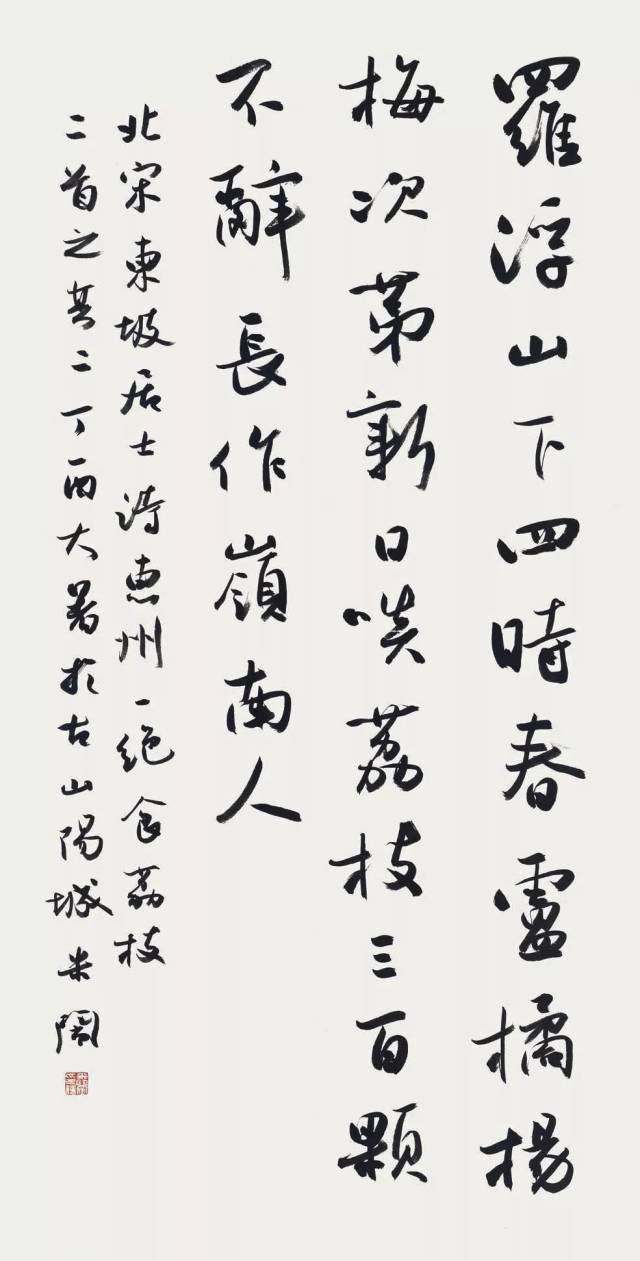 羅浮山下四時春盧橘楊
梅次第新日啖荔枝三百顆
不辭長作嶺南人
北宋東坡居士詩惠州一絕食荔枝
二首之其二丁酉大暑於古山陽城米鬧